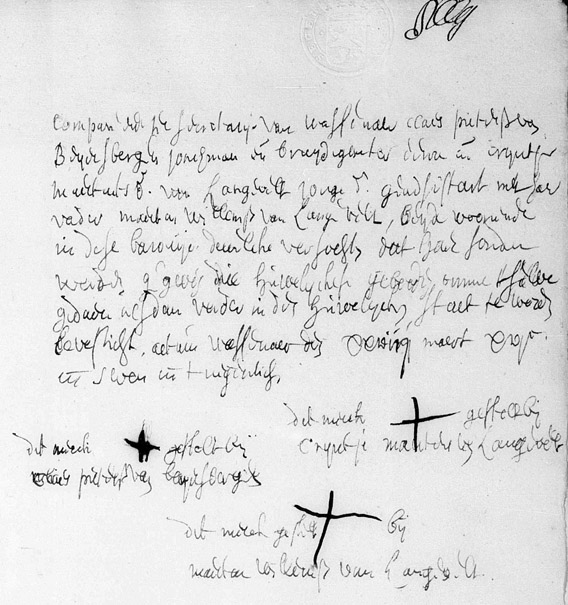 Compareerde ter Secretarije van Wassenaer Claes pieterss van
Beijersbergen jonghman en bruijdegom ter eenre en Crijntje
Maertens d. van Langevelt jonge d. geadsisteert met haer
vader Maerten Willemss van Langevelt, beijde woonende
in dese baronije dewelcke versochten dat haer souden
werden gegeven drie huwelijckse geboden omme t selve
gedaen als dan verder in den huwelijcken staet te werden
bevesticht, actum Wassenaer den maert
en seven en tnegentich.
dit merck gestelt bij
Crijntje Maertens van Langevelt
dit merck gestelt bij
Claes pieterss van beijersbergen
dit merck gestelt bij
Maerten Willemss van Langevelt